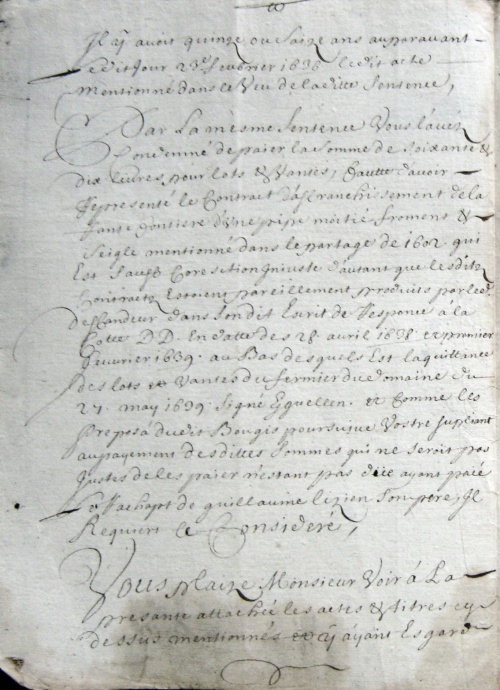 Il y avoit quinze ou saize ans auparavant
ledit jour 23e feuvrier 1638 ledit acte
mentionné dans le veu de laditte sentence,
Par la mesme sentence vous l'avez
condemné de paier la somme de soixante &
dix livres pour lots & vantes, fautte d'avoir
represanté le contract d'affranchissement de la
rante fontiere d'une pipe moitié fromens &
seigle mentionné dans le partage de 1602 qui
est sauff correction injuste d'autant que lesdits
contracts estoient pareillement produits par led.
deffandeur dans sondit escrit de response à la
cotte D D. en datte des 28 avril 1638 et premier
feuvrier 1639. au bas desquels est la quittance
des lots et vantes du fermier du domaine du
27. may 1639 signé et comme les
preposé dudit Bougis poursuive vostre supliant
au payement desdittes sommes qui ne seroit pas
justes de les paier n'estant pas ayant paié
rachapt de guillaume son pere, Il
requiert ce consideré,
Vous plaize Monsieur voir à la
presante attachée les actes & titres cy
dessus mentionnés et y ayant esgard